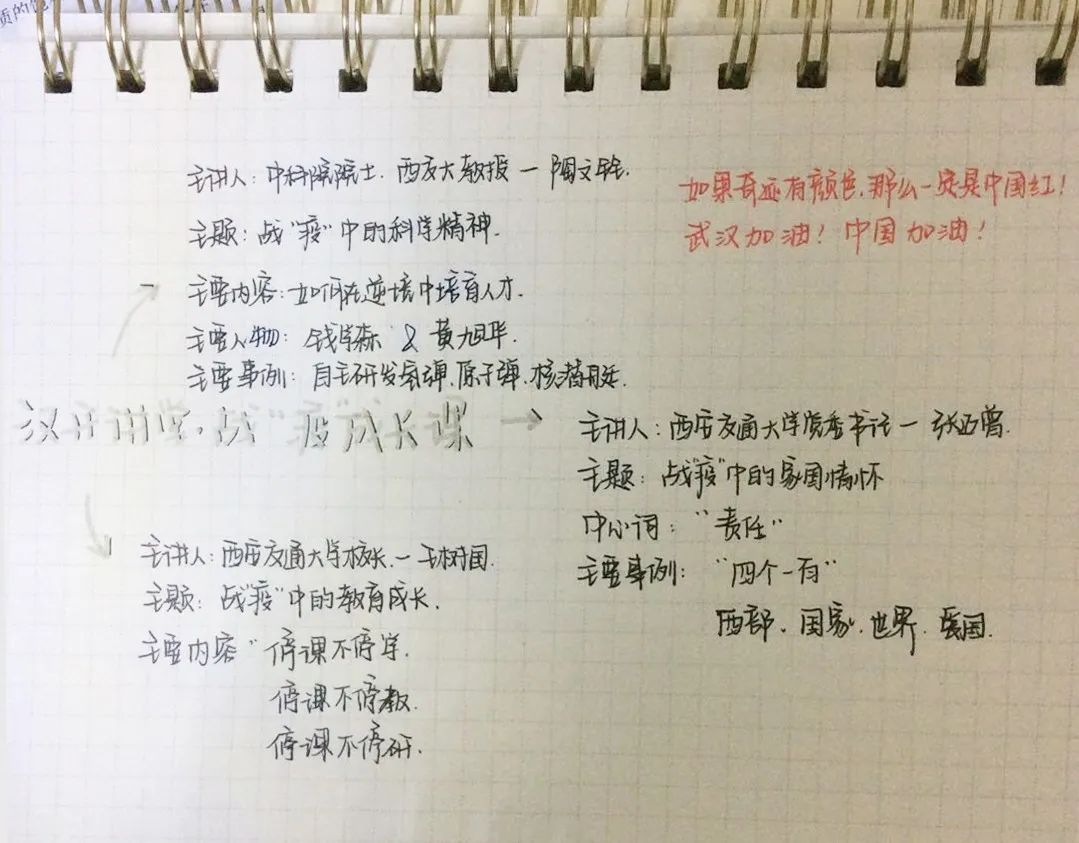 主讲人：中科院院士．西交大教授一陶文铨．
主题：战“疫”中的科学精神．
主要内容：如何在逆境中培育人才．
主要人物：钱学森 & 黄旭华．
主要事例：自主研发氢弹．原子弹．核潜艇．
如果奇迹有颜色，那么一定是中国红！
武汉加油！中国加油！
开讲学，战“疫”成长课 →
主讲人：西安交通大学党委书记一张迈曾．
主题：战“疫”中的家国情怀
中心词：“责任”
主要事例：“四个一百”
西部．国家．世界．爱国．
主讲人：西安交通大学校长．一王树国．
主题：战“疫”中的教育成长．
主要内容“停课不停学．
停课不停教．
停课不停研．